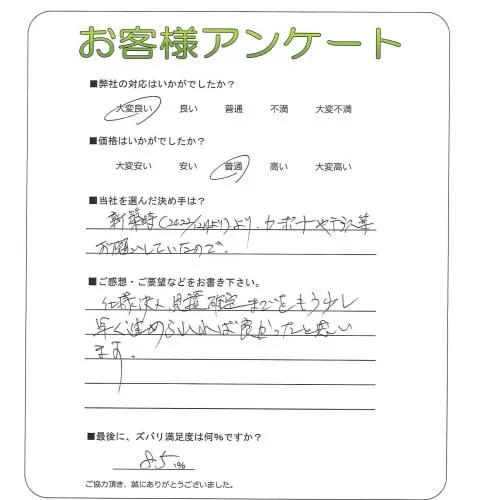 お客様アンケート
■弊社の対応はいかがでしたか?
大変良い 良い 普通 不満 大変不満
■価格はいかがでしたか?
大変安い 安い 普通 高い 大変高い
■当社を選んだ決め手は?
新築時(2022/12月より)より、カーポートやテラス等
お願いしていたので。
■ご感想・ご要望などをお書き下さい。
仕様決め、見積確定までをもう少し
早く進められれば良かったと思い
ます。
■最後に、ズバリ満足度は何%ですか?
85%
ご協力頂き、誠にありがとうございました。